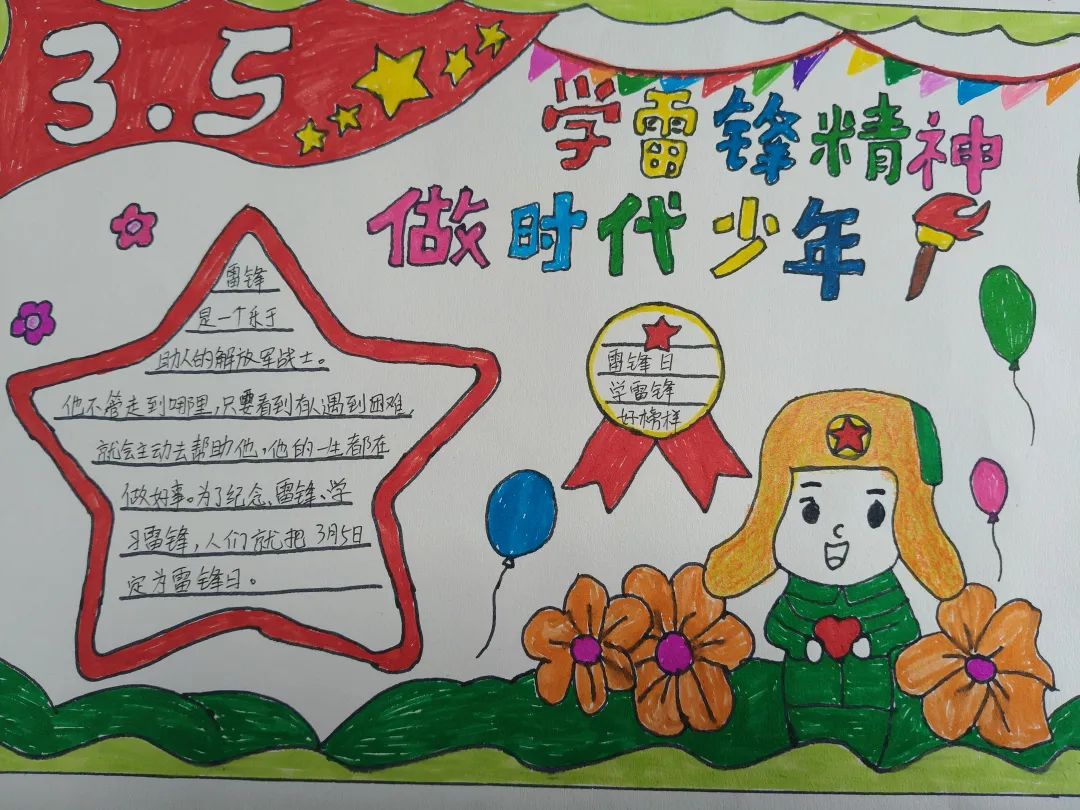 3.5
学雷锋精神
做时代少年
雷锋
是一个乐于
助人的解放军战士。
他不管走到哪里,只要看到有人遇到困难,
就会主动去帮助他,他的一生都在
做好事。为了纪念雷锋、学
习雷锋,人们就把3月5日
定为雷锋日。
雷锋日
学雷锋
好榜样